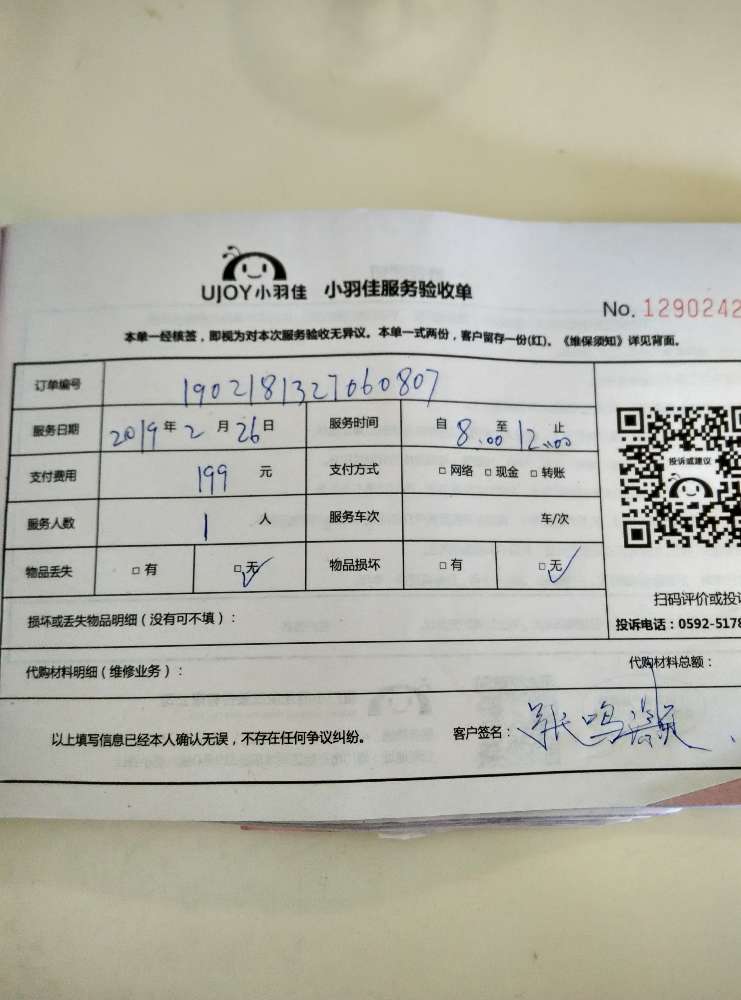 UJOY小羽佳 小羽佳服务验收单
No. 1290242
本单一经核签，即视为对本次服务验收无异议。本单一式两份，客户留存一份(红)。《维保须知》详见背面。
订单编号 1902181327060807
服务日期 2019年2月26日 服务时间 自8:00至12:00止
支付费用 199元 支付方式 □网络 □现金 □转账
投诉或建议
服务人数 1人 服务车次 车/次
物品丢失 □有 □无 物品损坏 □有 □无
扫码评价或投
损坏或丢失物品明细（没有可不填）：
投诉电话：0592-5178
代购材料明细（维修业务）： 代购材料总额：
以上填写信息已经本人确认无误，不存在任何争议纠纷。 客户签名：张鸣